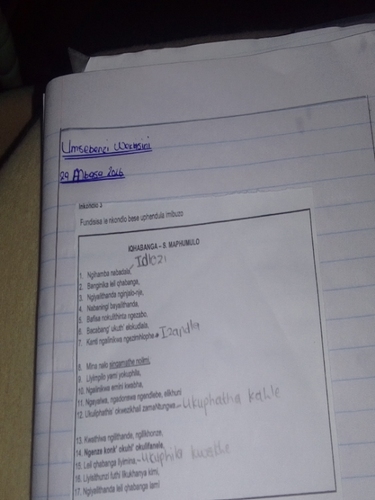 Umsebenzi Wasekhaya
29 Mbasa 2026
Inkondlo 3
Fundisisa le nkondlo bese uphendula imibuzo
IQHABANGA – B. MAPHUMULO
Idlozi
1. Ngihamba nabadala,
2. Banginika leli qhabanga,
3. Ngiyalithanda nginjalo-nje,
4. Nabaningi bayalithanda,
5. Bafisa nokulithinta ngezabo,
6. Bacabang' ukuthi elokudlala,
7. Kanti ngalinikwa ngezimhlophe Izandla
8. Mina nalo singamathe nolimi,
9. Liyingilo yami yokuphila,
10. Ngalinikwa emini kwabha,
11. Ngayalwa, ngadonswa ngandlebe, elikhuni
12. Ukuliphatha' okwezikhali zamaNtungwa – Ukuphatha kahle
13. Kwathiwa ngilithande, ngilikhonze,
14. Ngenze konk' okuhl' okulifanele,
15. Leli qhabanga liyimina, – Ukuphila kwakhe
16. Liyisithunzi futhi likukhanya kimi,
17. Ngiyalithanda leli qhabanga lami